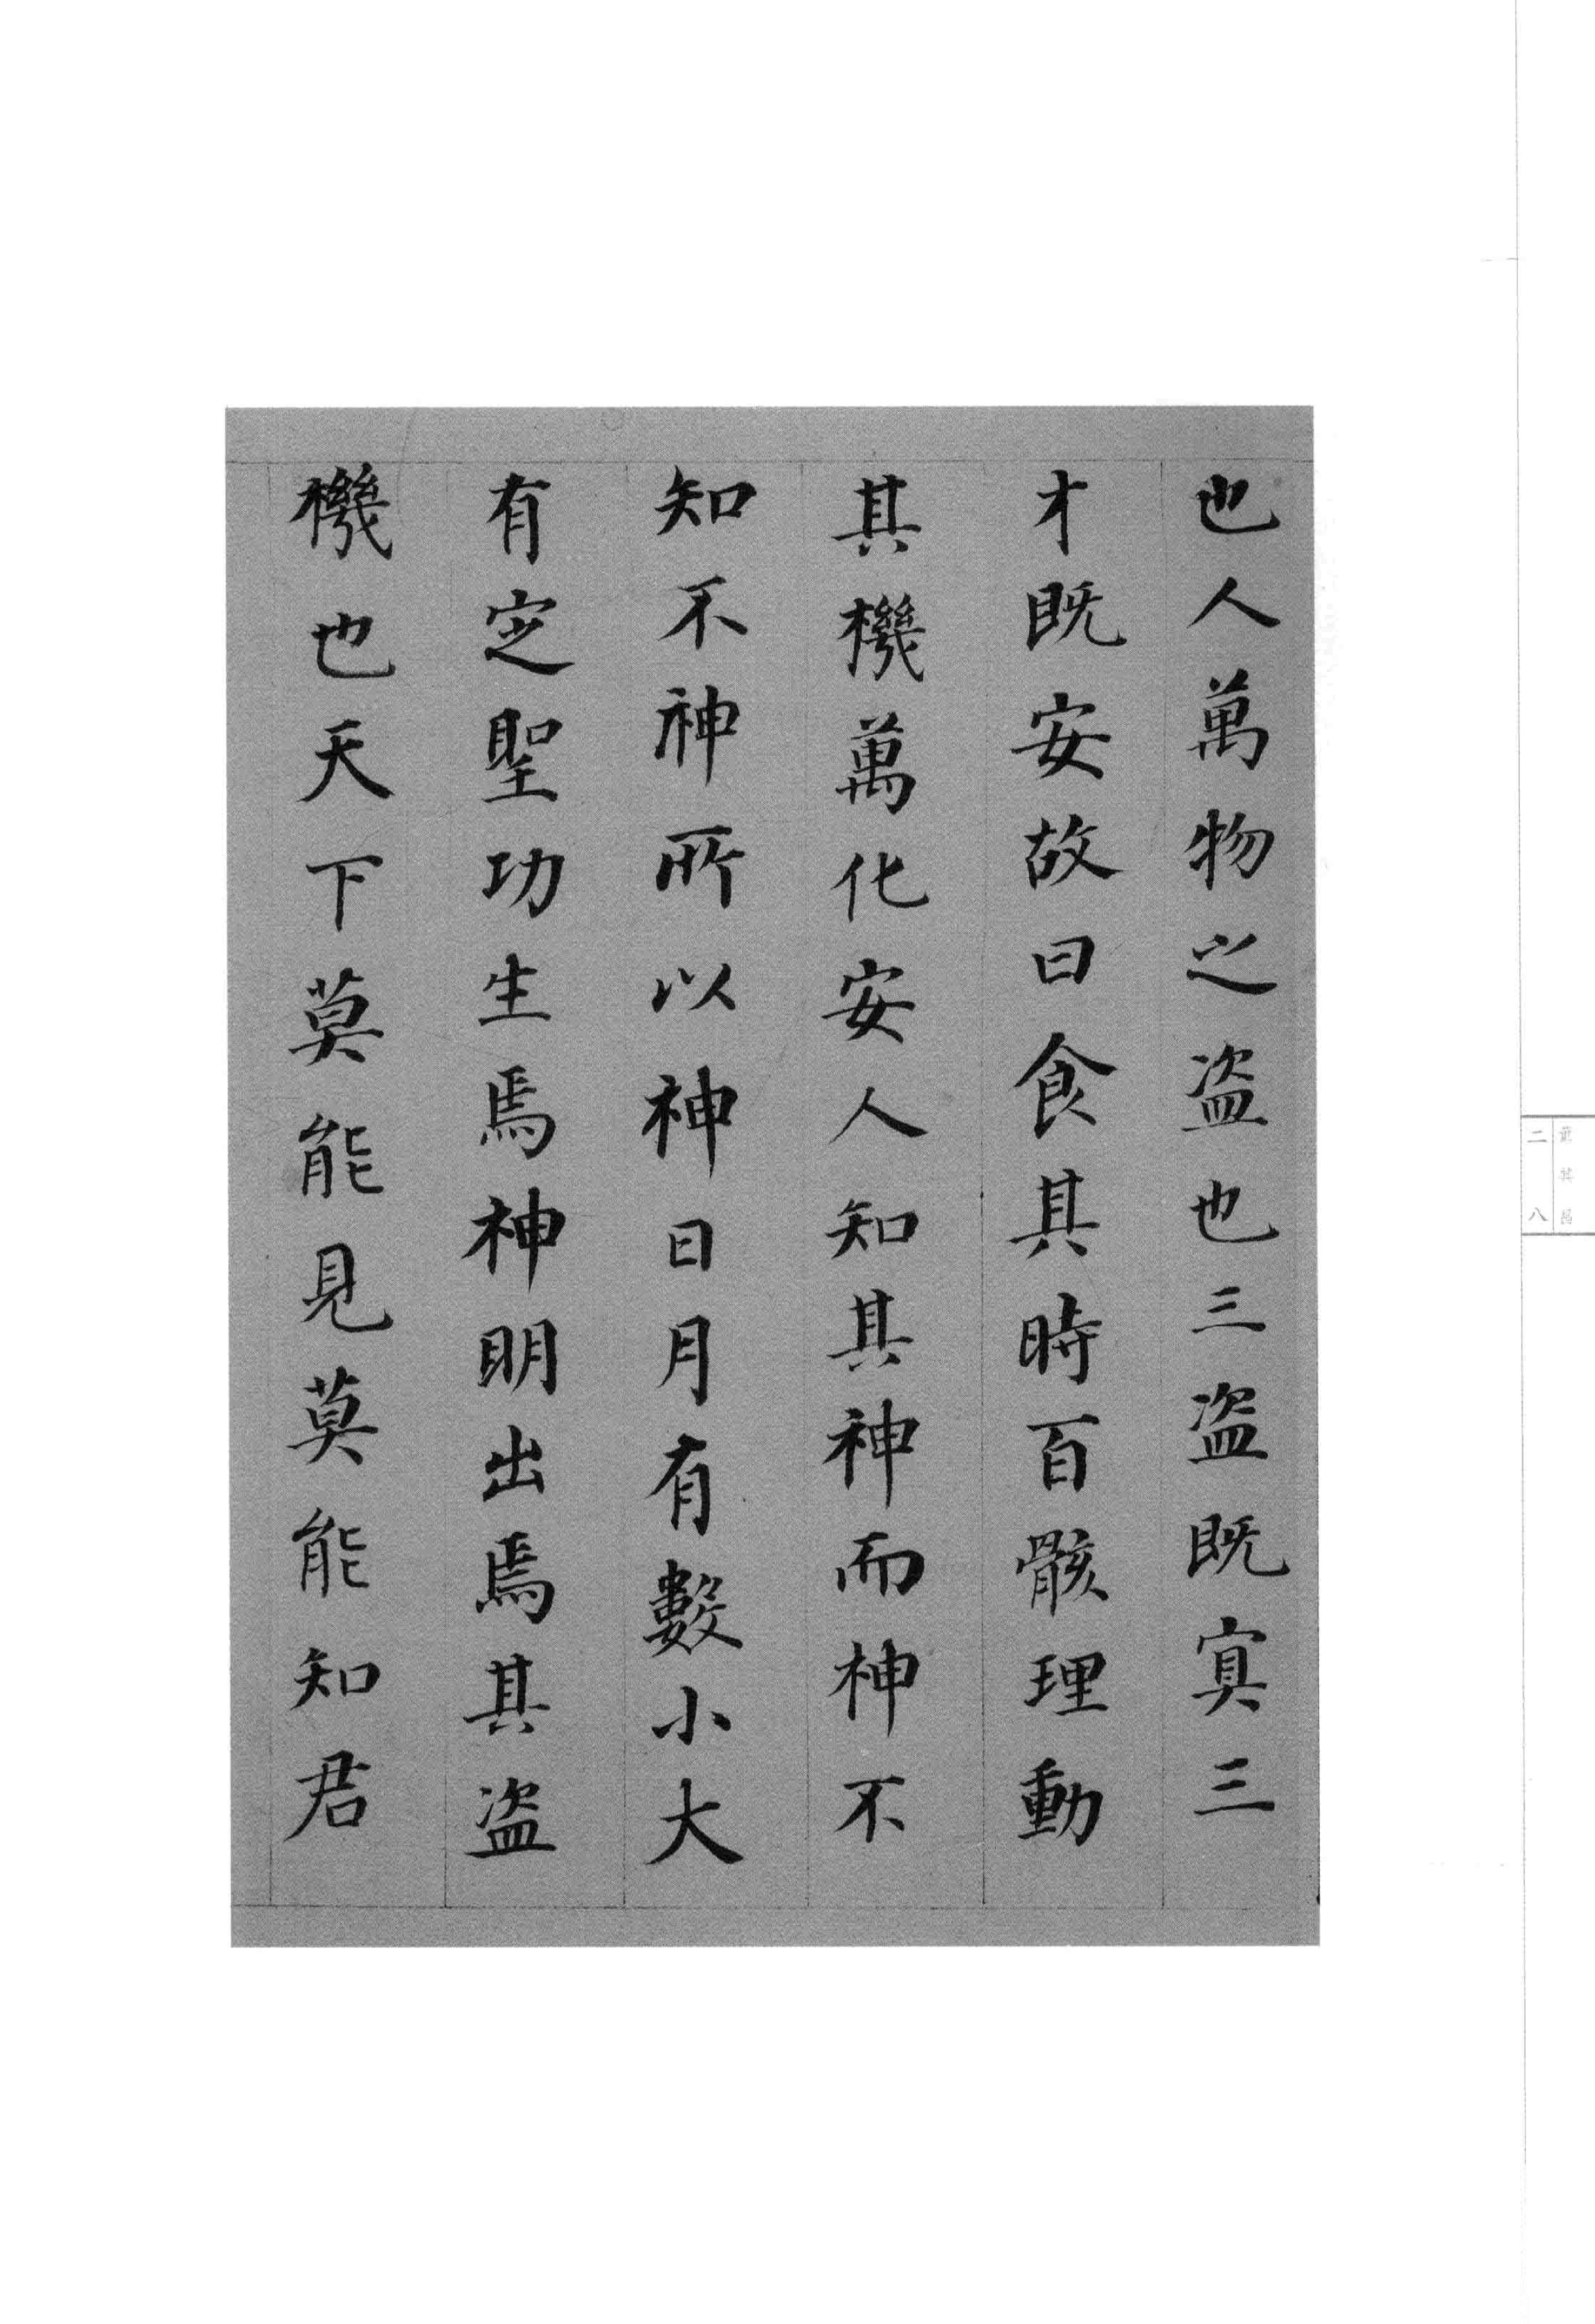 也人萬物之盗也三盗既寘三
才既安故曰食其時百骸理動
其機萬化安人知其神而神不
知不神所以神日月有數小大
有定聖功生焉神明出焉其盗
機也天下莫能見莫能知君
董其昌
二八